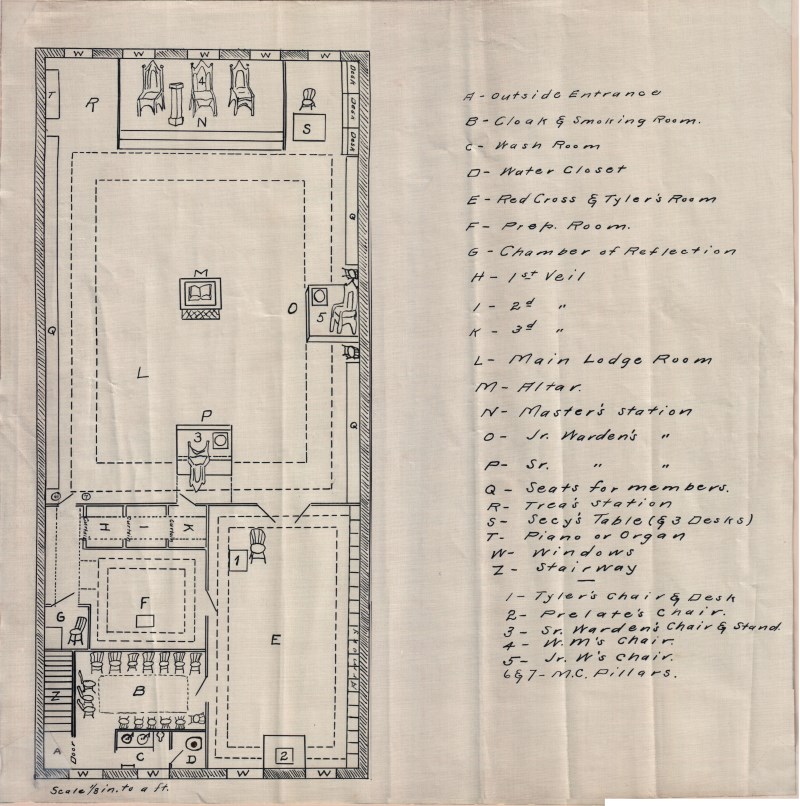 W W W W W
T
R
4
N
S
Desk
Desk
Desk
Q
M
O
5
Q
L
P
3
Q
6 7
H I K
Curtain Curtain Curtain
1
F
G
E
Z
B
A
Door
C
D
2
W W W W
Scale 1/8 in. to a ft.
A - Outside Entrance
B - Cloak & Smoking Room.
C - Wash Room
D - Water Closet
E - Red Cross & Tyler's Room
F - Prep. Room.
G - Chamber of Reflection
H - 1st Veil
I - 2d "
K - 3d "
L - Main Lodge Room
M - Altar.
N - Master's Station
O - Jr. Warden's "
P - Sr. " "
Q - Seats for members.
R - Trea's Station
S - Secy's Table (& 3 Desks)
T - Piano or Organ
W - Windows
Z - Stairway
1 - Tyler's Chair & Desk
2 - Prelate's Chair.
3 - Sr. Warden's Chair & Stand.
4 - W.M's Chair.
5 - Jr. W's Chair.
6 & 7 - M.C. Pillars.